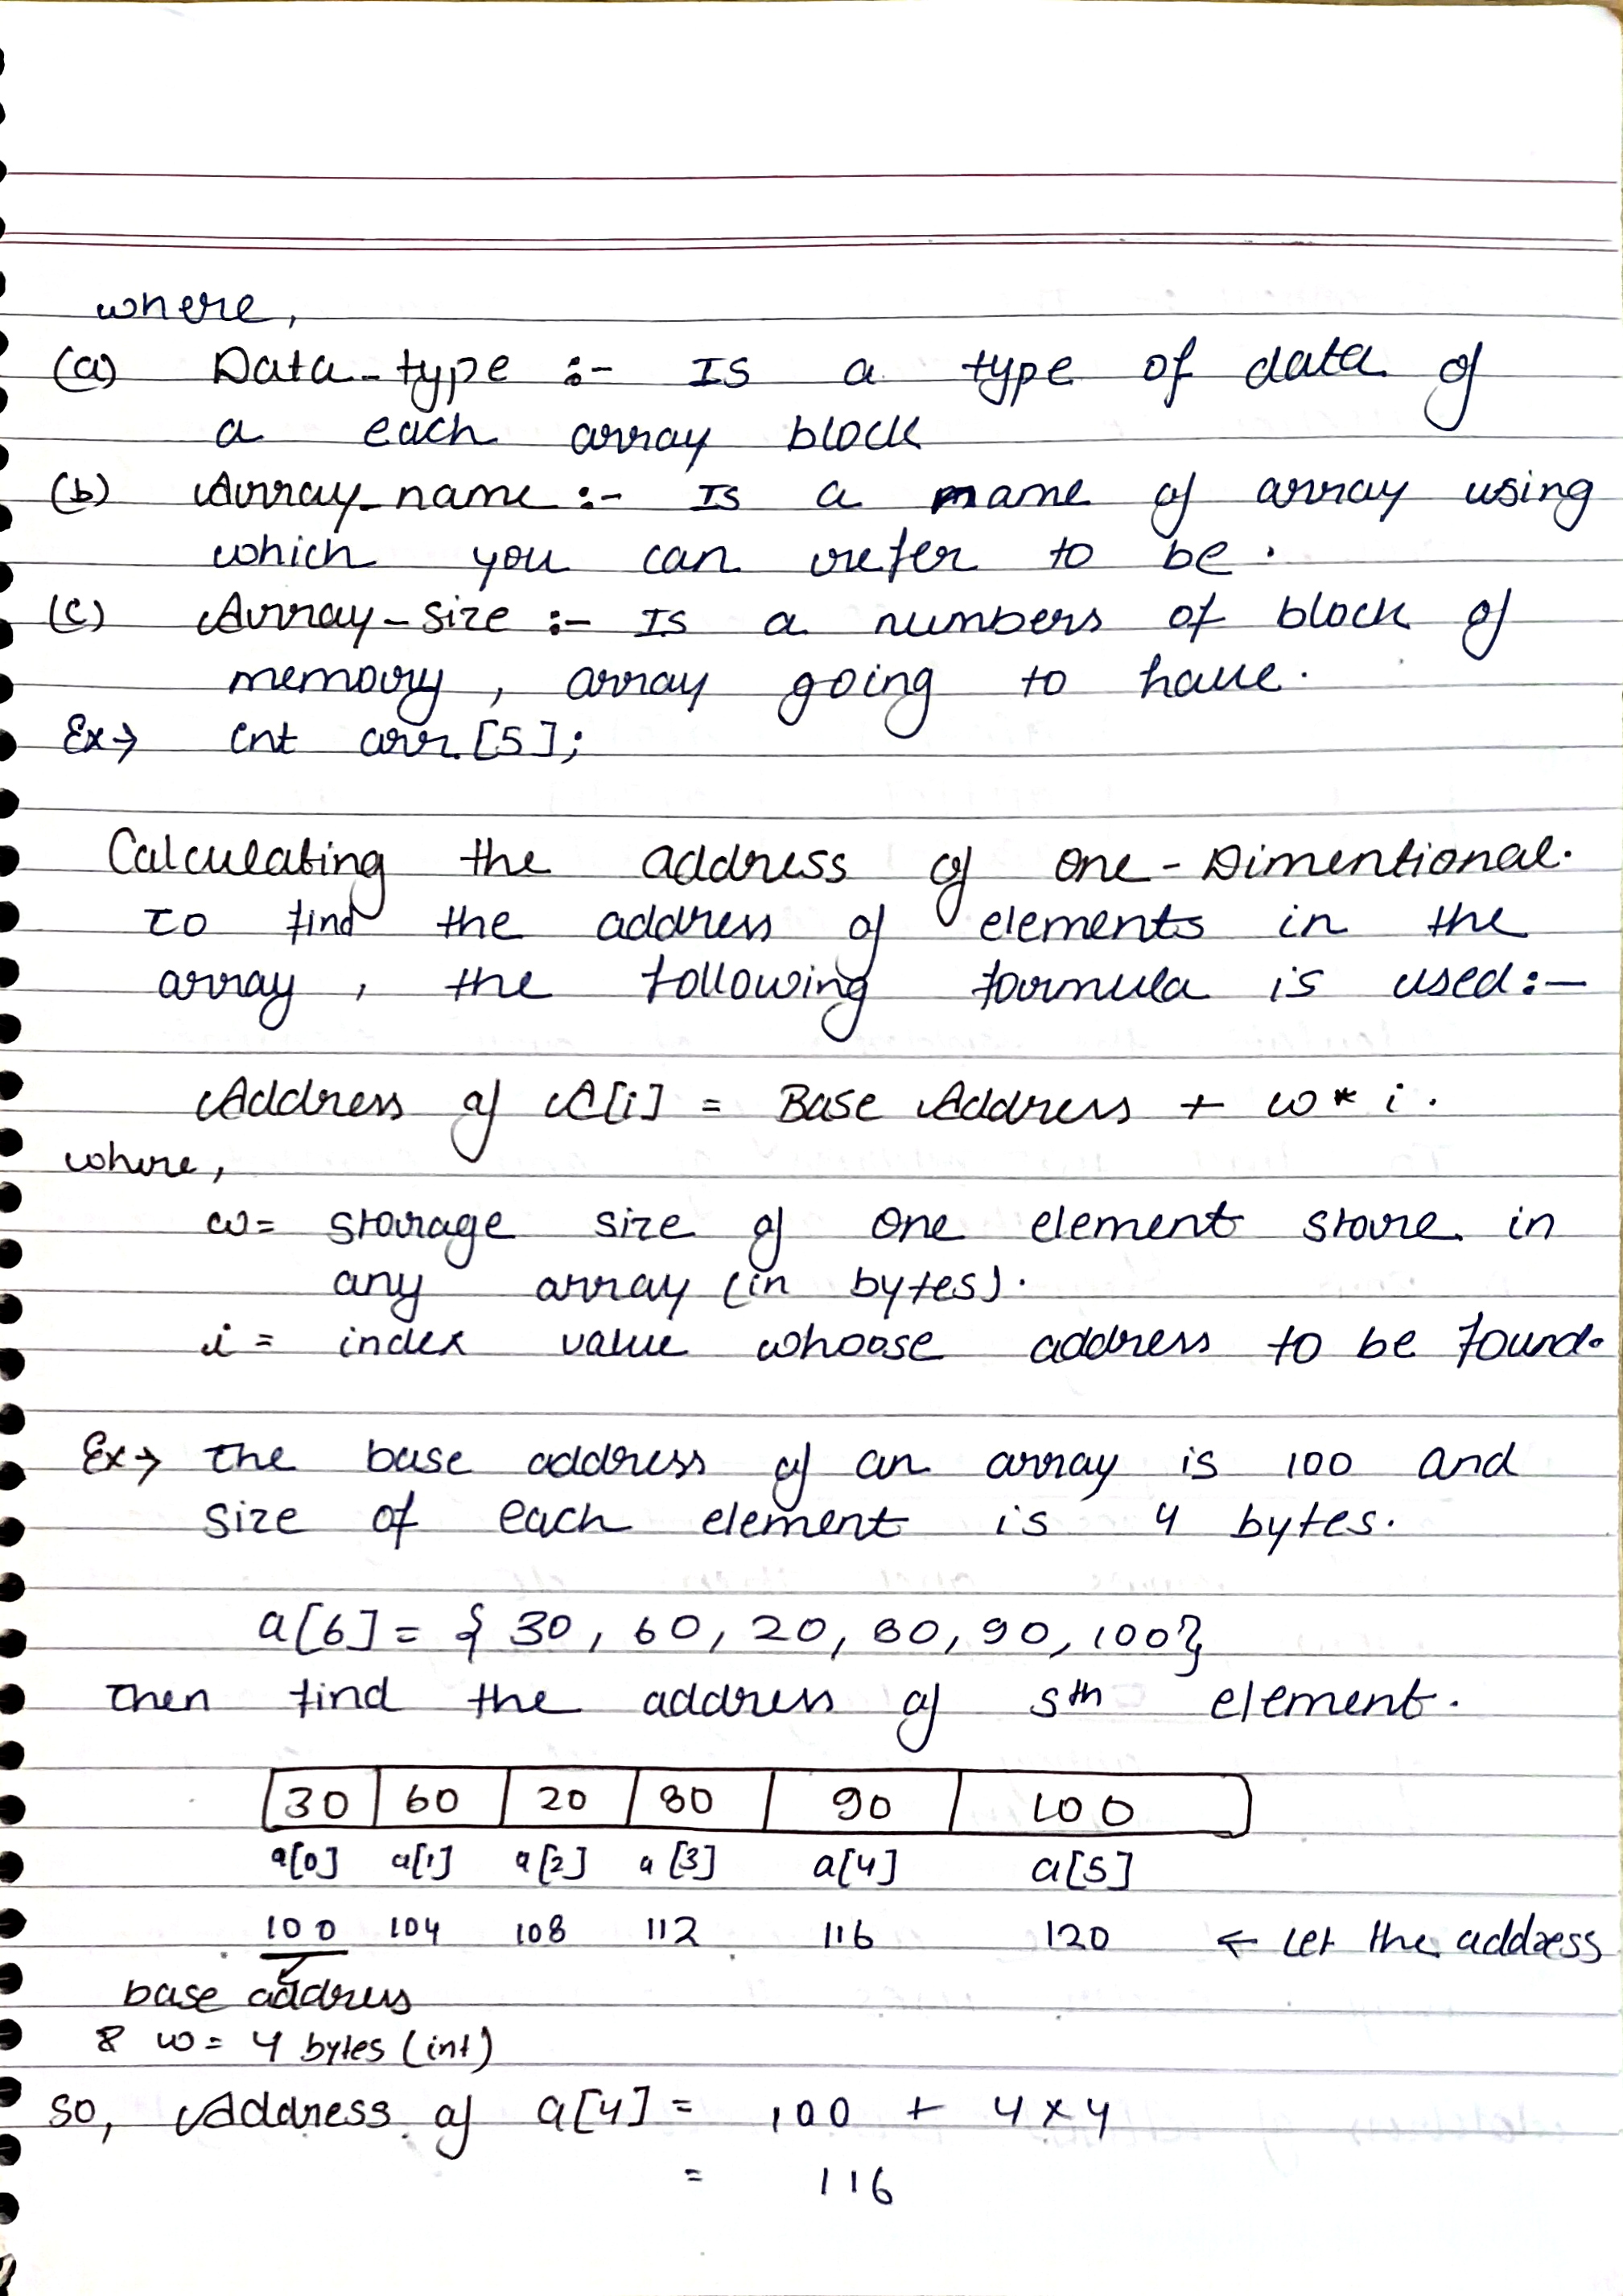 where,
(a) Data-type :- Is a type of data of
a each array block
(b) Array-name :- Is a name of array using
which you can refer to be.
(c) Array-size :- Is a numbers of block of
memory, array going to have.
Ex→ int arr[5];
Calculating the address of one-Dimentional.
To find the address of elements in the
array, the following formula is used:-
Address of A[i] = Base Address + w * i.
where,
w= storage size of one element store in
any array (in bytes).
i = index value whoose address to be found.
Ex→ The base address of an array is 100 and
size of each element is 4 bytes.
a[6] = { 30, 60, 20, 80, 90, 100}
Then find the address of 5th element.
30 60 20 80 90 100
a[0] a[1] a[2] a[3] a[4] a[5]
100 104 108 112 116 120 ← Let the address
base address
& w = 4 bytes (int)
so, Address of a[4] = 100 + 4×4
= 116